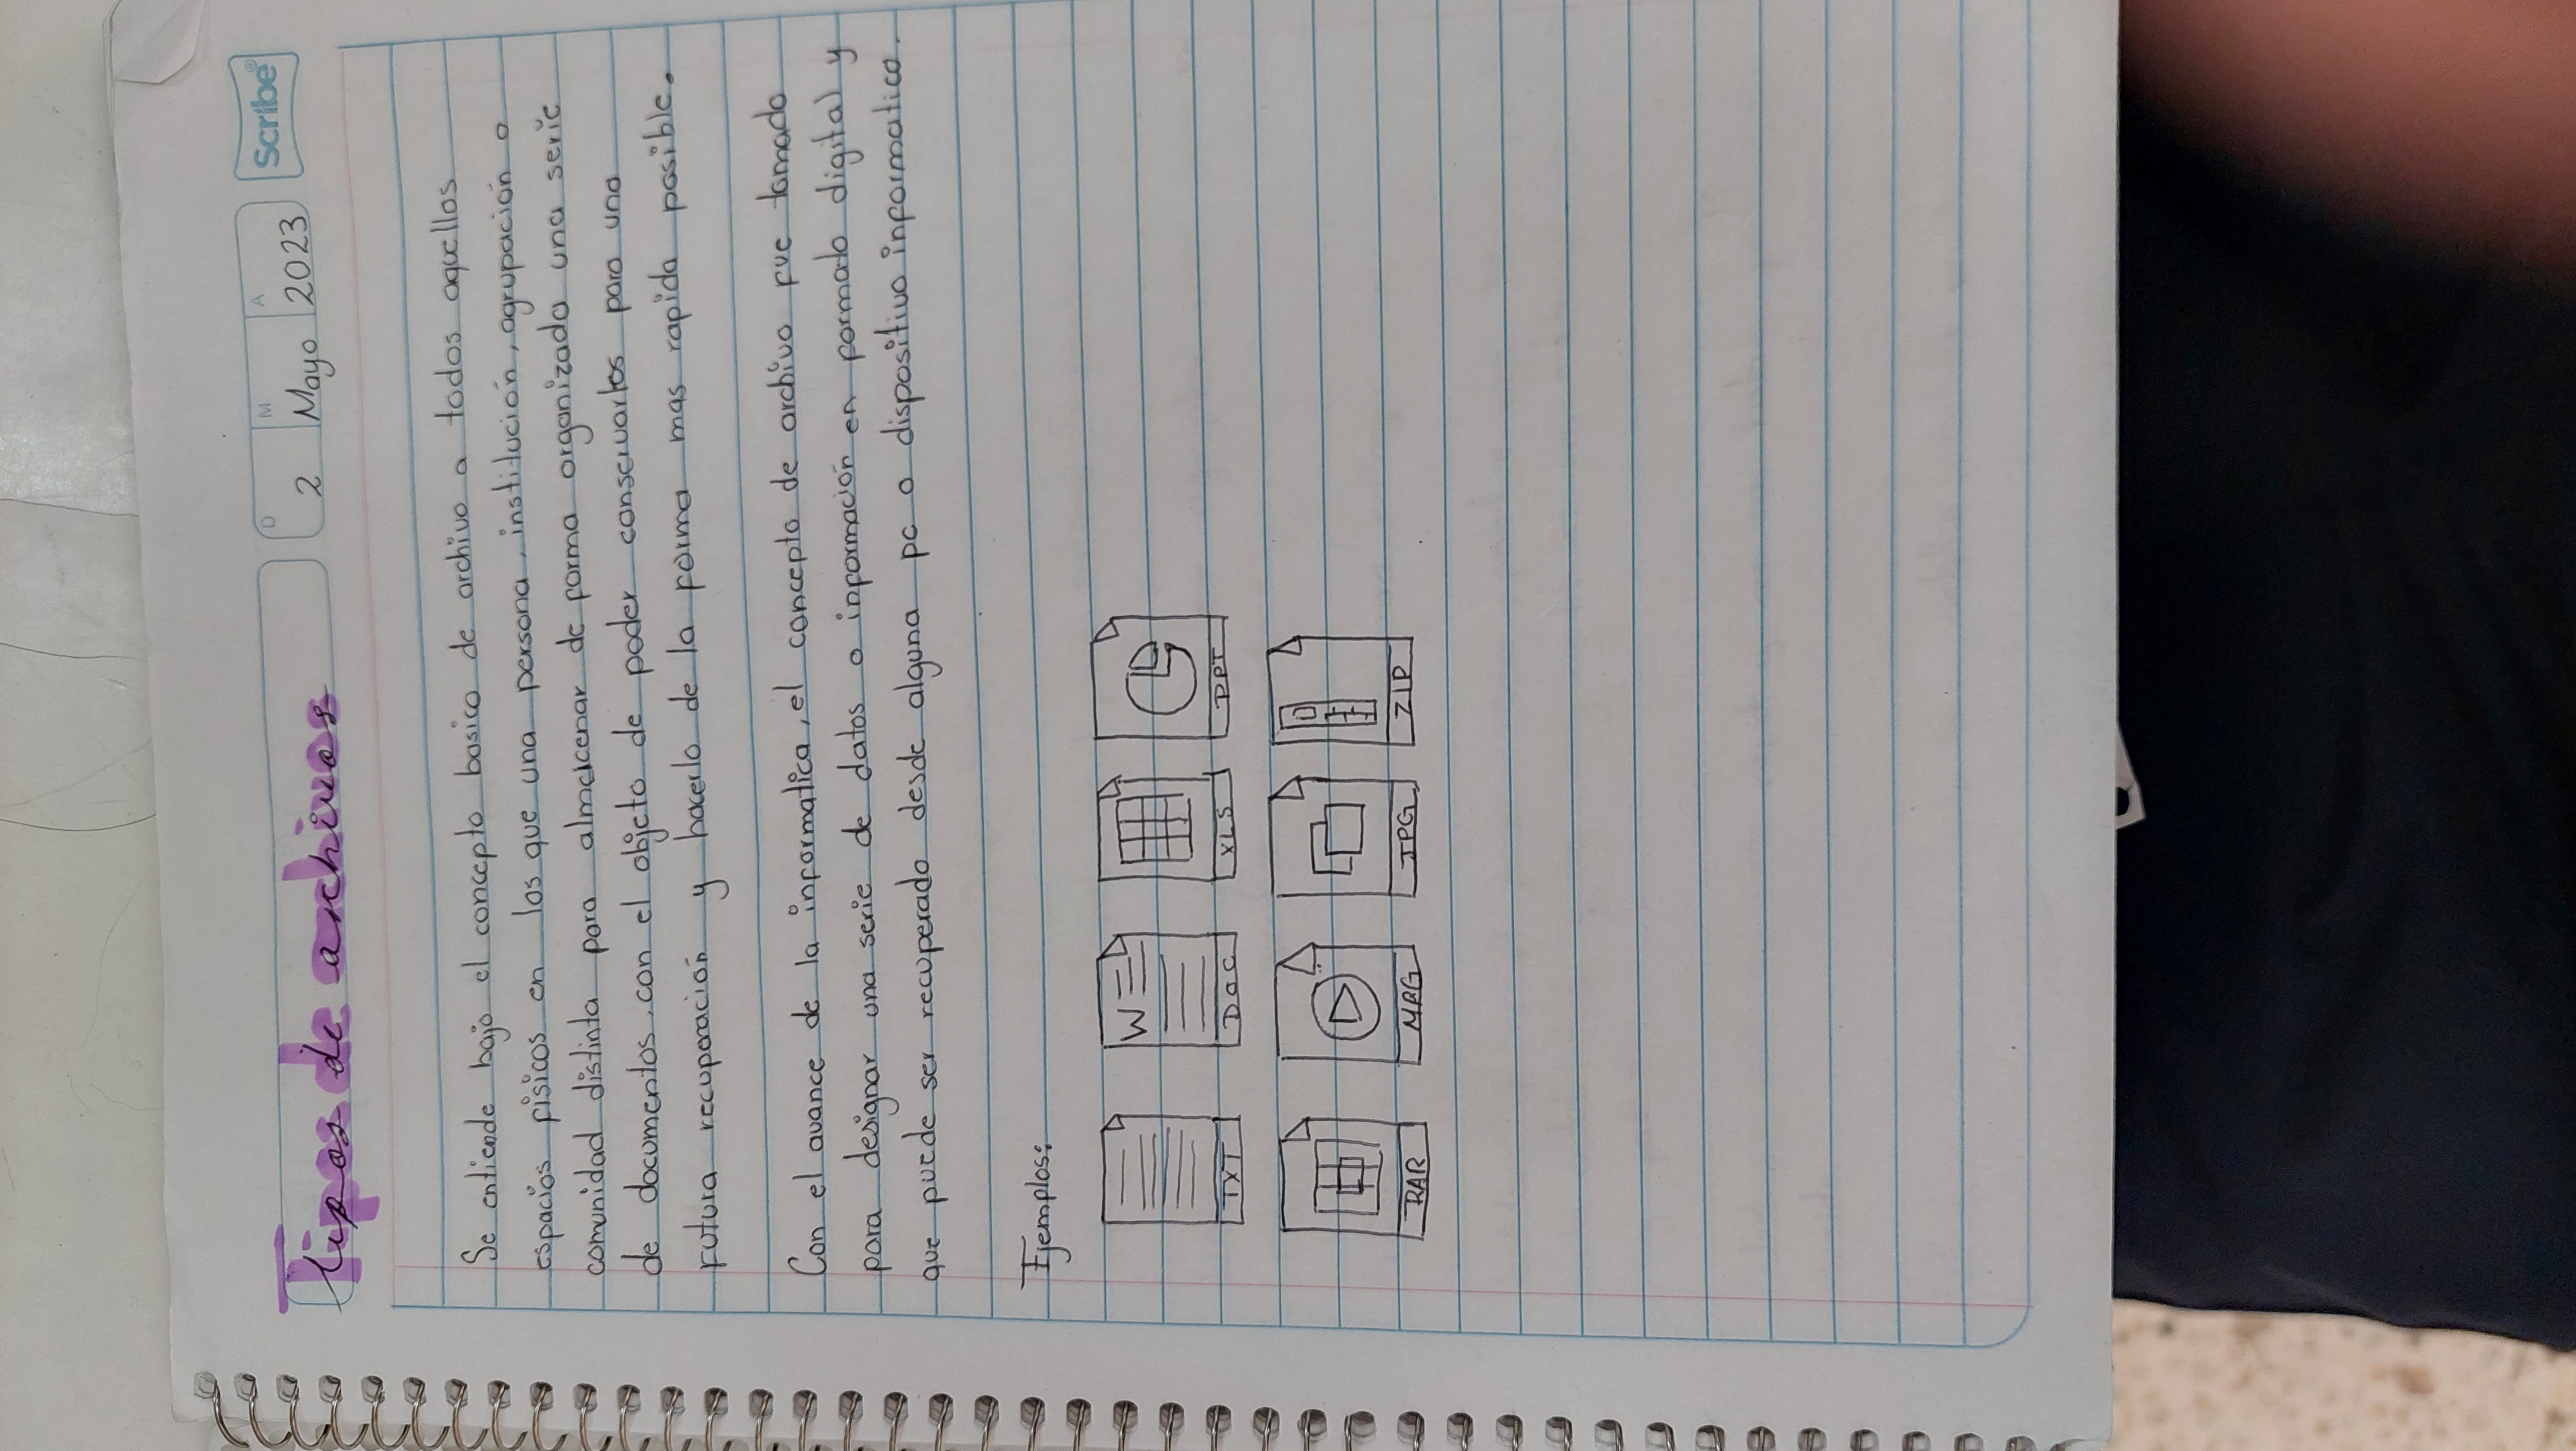 Tipos de archivos
D M A
2 Mayo 2023
Scribe®
Se entiende bajo el concepto basico de archivo a todos aquellos
espacios fisicos en los que una persona, institución, agrupación o
comunidad distinta para almacenar de forma organizada una serie
de documentos, con el objeto de poder conservarlos para una
Futura recuperación y hacerlo de la forma mas rapida posible.
Con el avance de la informatica, el concepto de archivo fue tomado
para designar una serie de datos o información en formato digital y
que puede ser recuperado desde alguna pc o dispositivo informatico.
Ejemplos:
W
TXT DOC XLS PPT
RAR MPG JPG ZIP